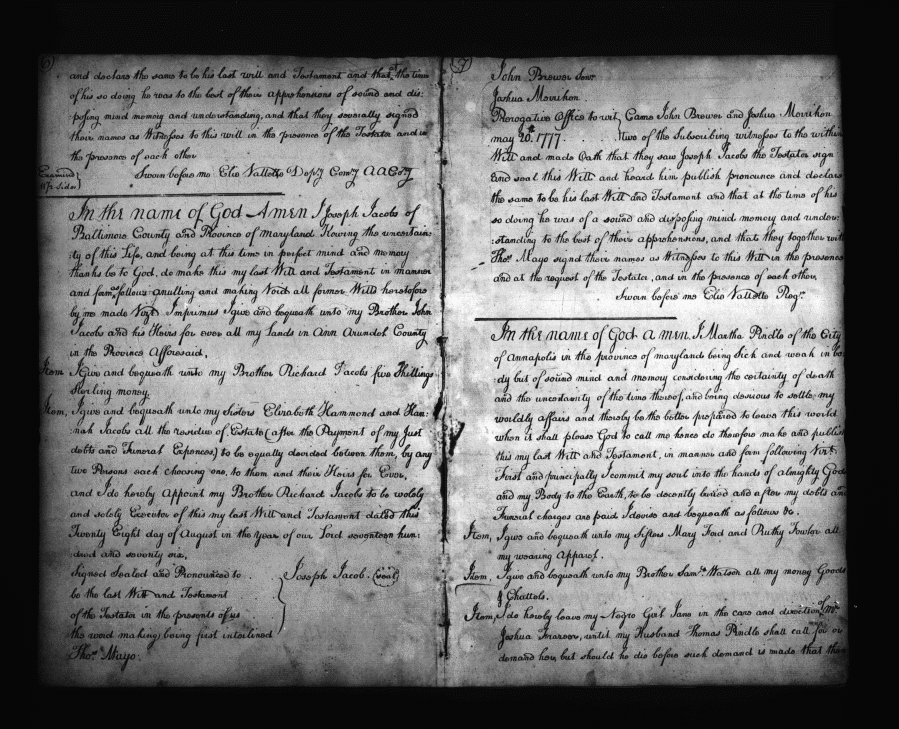 and declare the same to be his last will and Testament and that at the time
of his so doing he was to the best of their apprehensions of sound and dis:
posing mind memory and understanding, and that they severally signed
their names as Witnesses to this will in the presence of the Testator and in
the presence of each other
Sworn before me Elie Vallette Depy Comy A A Coy
Examined
In the name of God Amen I Joseph Jacobs of
Baltimore County and Province of Maryland Knowing the uncertain:
ty of this Life, and being at this time in perfect mind and memory
thanks be to God, do make this my last Will and Testament in manner
and form as follows anulling and making Void all former Wills heretofore
by me made Vizt Imprimus I give and bequeath unto my Brother John
Jacobs and his Heirs for ever all my Lands in Ann Arundel County
in the Province Afforesaid,
Item I Give and bequeath unto my Brother Richard Jacobs five Shillings
Sterling money
Item, I give and bequeath unto my sisters Elizabeth Hammond and Han:
nah Jacobs all the residue of Estate (after the Payment of my Just
debts and Funeral Expences) to be equally divided between them, by any
two Persons each choosing one, to them and their Heirs for Ever,
and I do hereby Appoint my Brother Richard Jacobs to be wholely
and solely Executor of this my last Will and Testament dated this
Twenty Eight day of August in the year of our Lord seventeen hun:
dred and seventy six,
Signed Sealed and Pronounced to
be the last Will and Testament
of the Testator in the presents of us
the word making being first interlined
Joseph Jacob. (seal)
Thos. Mayo.
7
John Brewer Senr
Joshua Merriken.
Prerogative Office to wit, Came John Brewer and Joshua Merriken
may 20th 1777. two of the Subscribing witnesses to the within
Will and made Oath that they saw Joseph Jacobs the Testator sign
and seal this Will and heard him publish pronounce and declare
the same to be his last Will and Testament and that at the time of his
so doing he was of a sound and disposing mind memory and under:
:standing to the best of their apprehensions, and that they together with
Thos. Mayo signed their names as Witnesses to this Will in the presence
and at the request of the Testator, and in the presence of each other
Sworn before me Elie Vallette Regr.
In the name of God amen I Martha Pindle of the City
of Annapolis in the province of maryland being Sick and weak in bo
:dy but of sound mind and memory considering the certainty of death
and the uncertainty of the time thereof, and being desirous to settle my
worldly affairs and thereby be the better prepared to leave this world
when it shall please God to call me hence do therefore make and publish
this my last Will and Testament, in manner and form following Vizt.
First and principally I commit my soul into the hands of almighty God
and my Body to the Earth, to be decently buried and after my debts and
Funeral charges are paid I devise and bequeath as follows &c.
Item, I give and bequeath unto my Sisters Mary Ford and Ruthy Fowler all
my wearing Apparel.
Item, I give and bequeath unto my Brother Saml. Watson all my money Goods
& Chattels.
Item, I do hereby leave my Negro Girl Jane in the care and direction of Mr.
Joshua Frazier, until my Husband Thomas Pindle shall call for or
demand her, but should he die before such demand is made that then